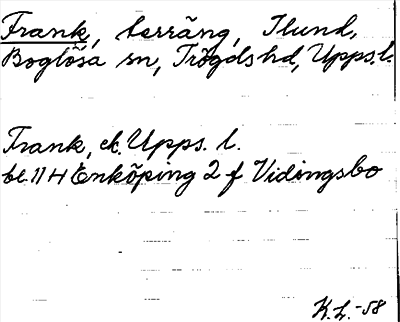 Frank, terräng, Ilund,
Boglösa sn, Trögds hd, Upps. l.
Frank, ek. Upps. l.
bl. 11 H Enköping 2 f Vidingsbo
K.L. -58